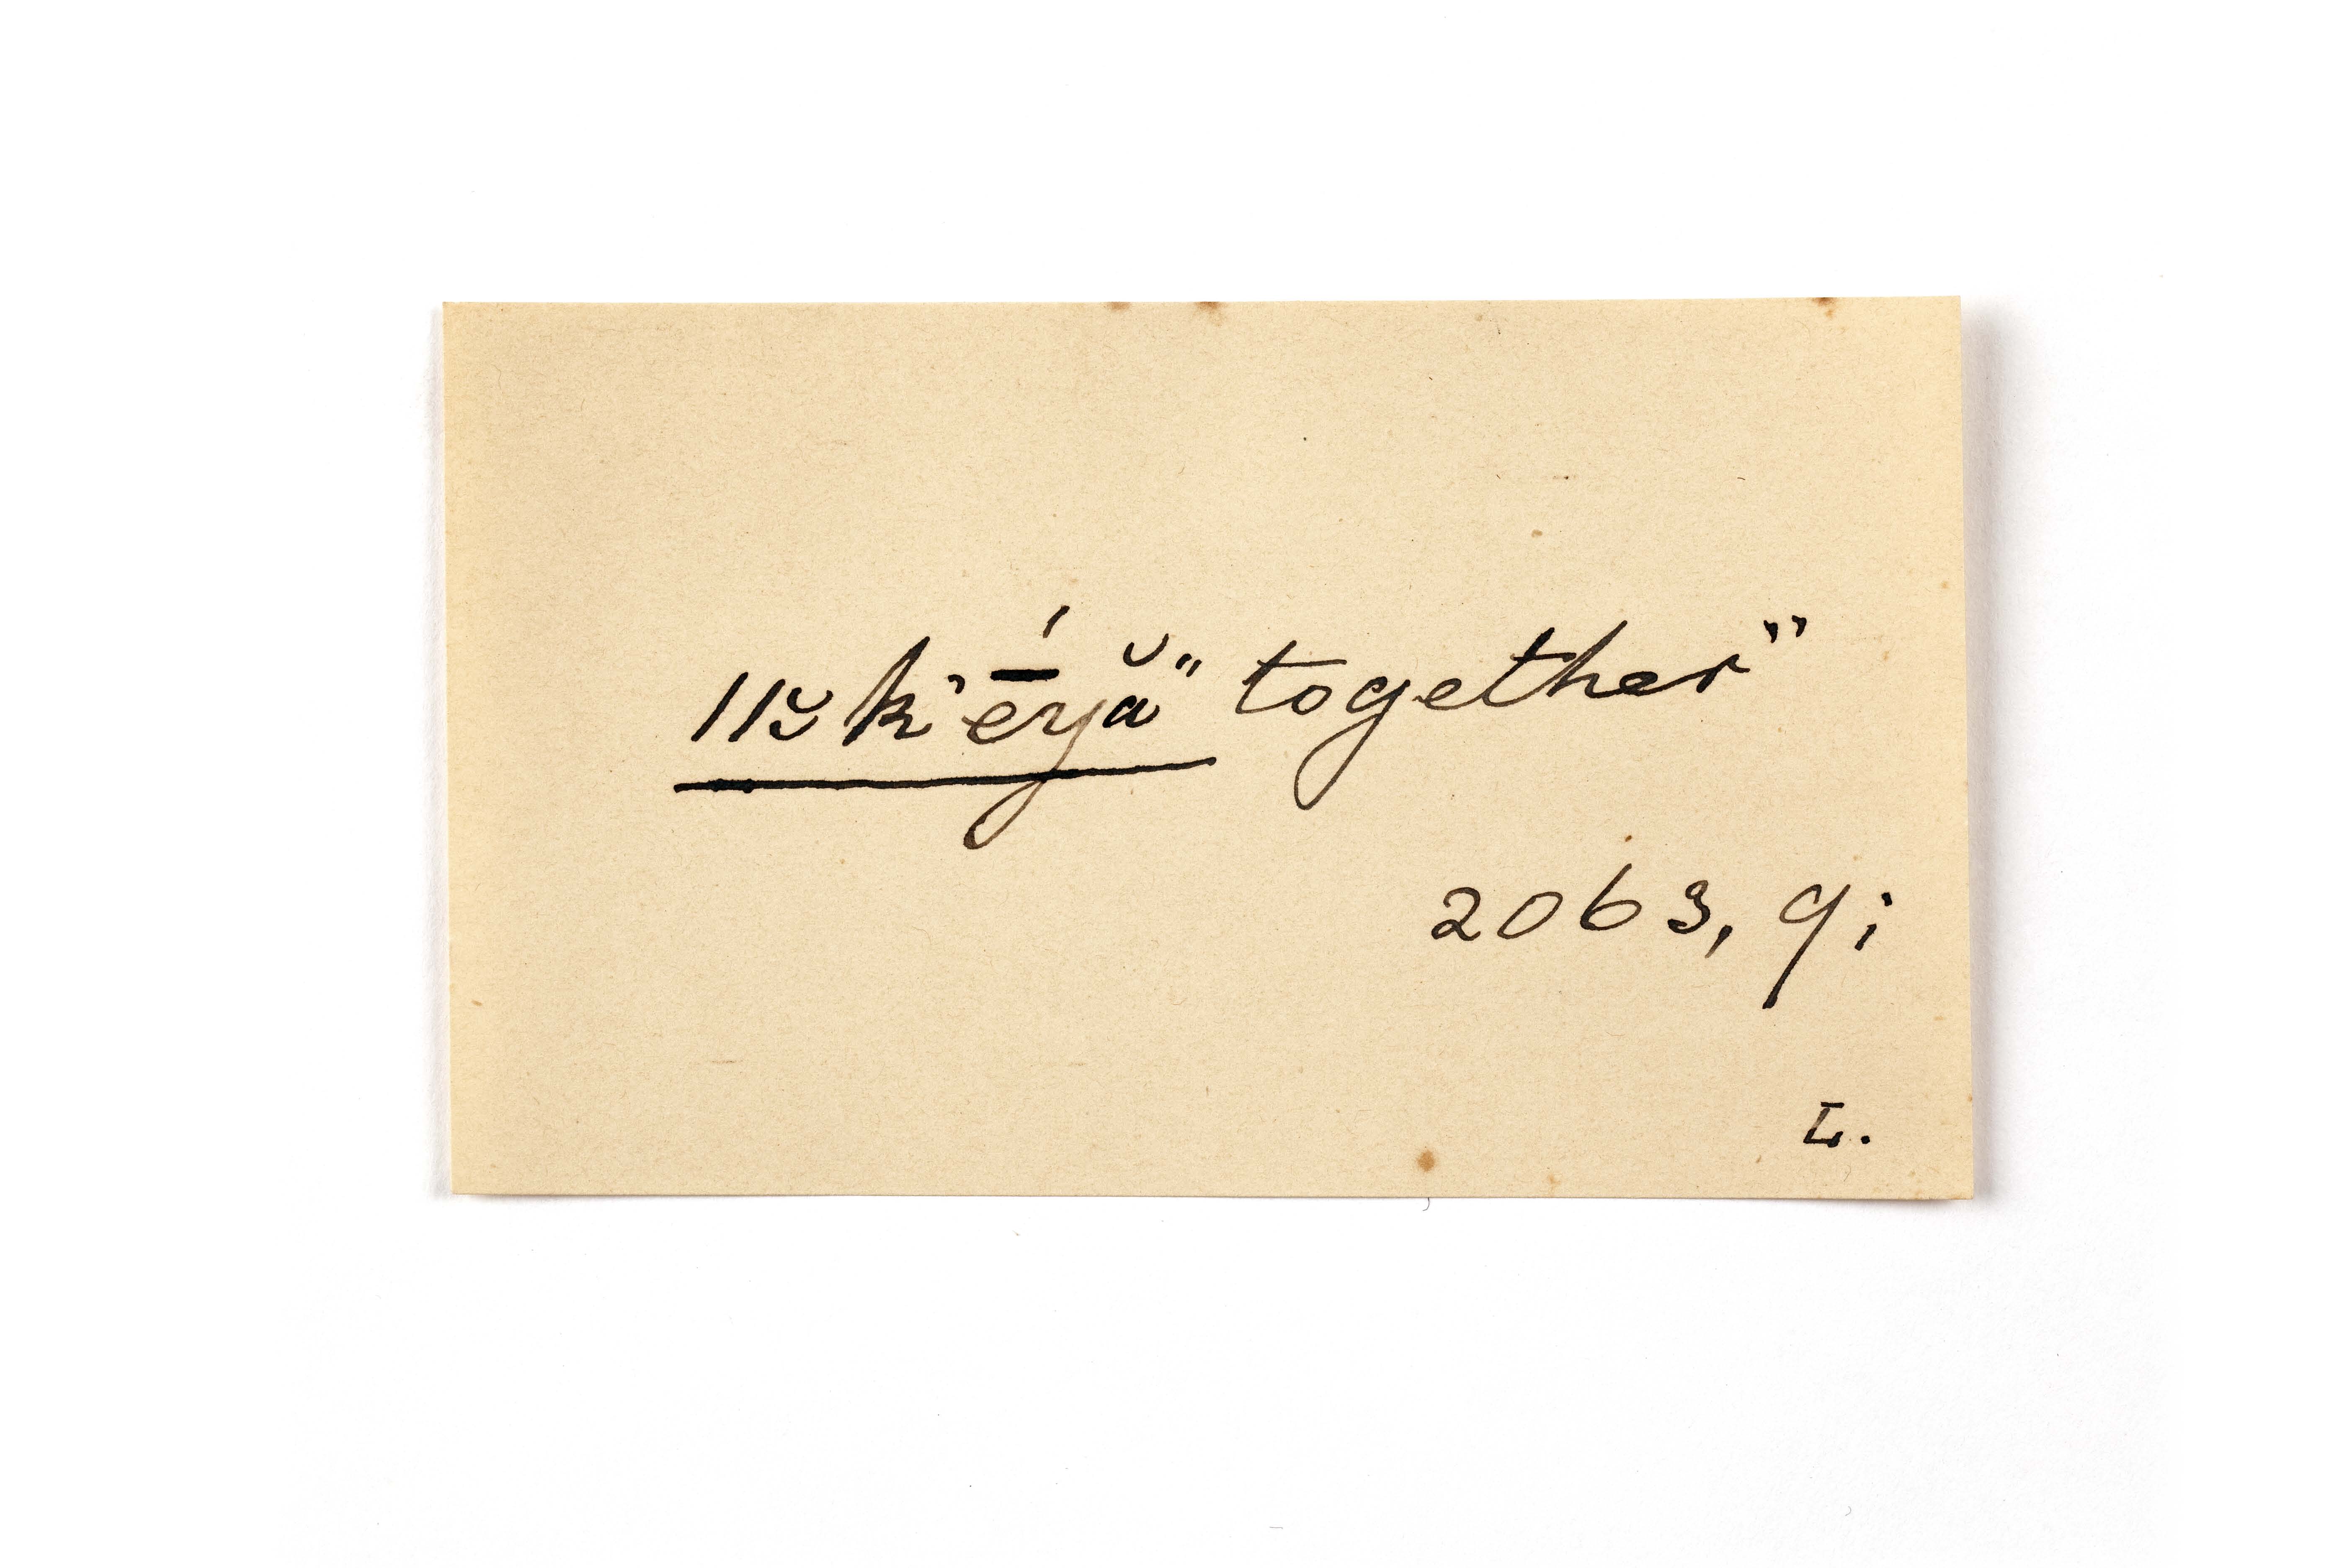 ||ŭk'ḗyă "together"
2063, 9;
L.